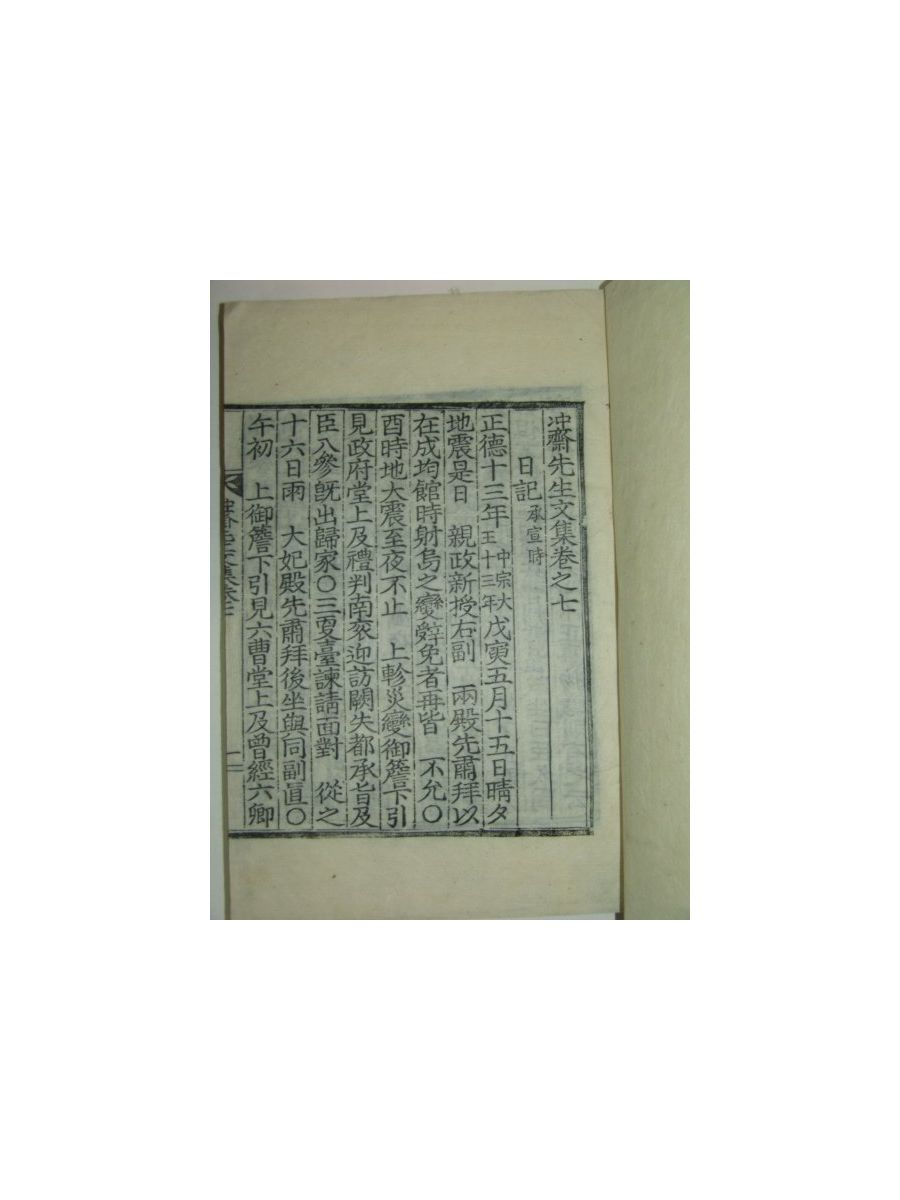 冲齋先生文集卷之七
日記承宣時
正德十三年中宗大王十三年戊寅五月十五日晴夕
地震是日 親政新授右副 兩殿先肅拜以
在成均館時射烏之變辭免者再皆 不允〇
酉時地大震至夜不止 上軫災變御簷下引
見政府堂上及禮判南衮迎訪闕失都承旨及
臣入參旣出歸家〇三更臺諫請面對 從之
十六日雨 大妃殿先肅拜後坐與同副眞〇
午初 上御簷下引見六曹堂上及曾經六卿